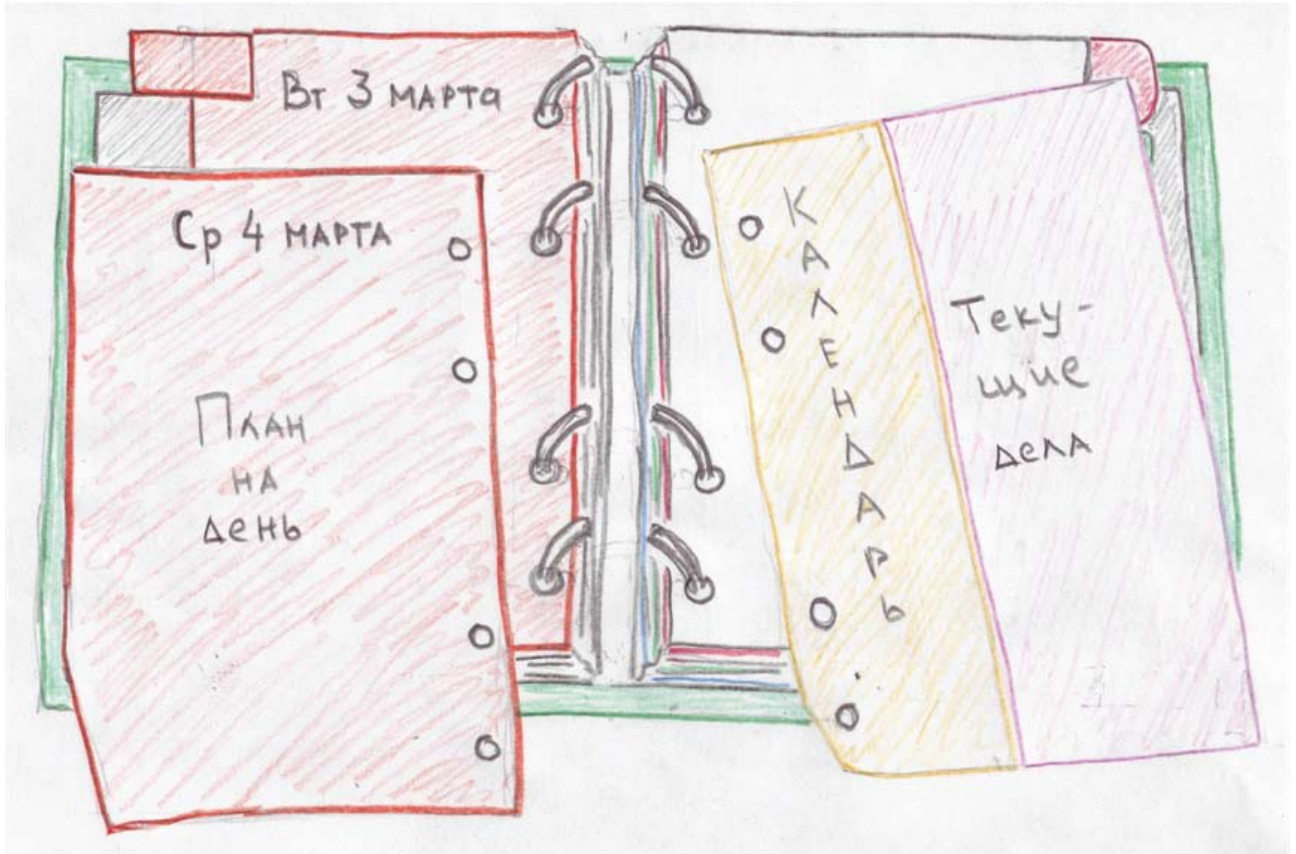 Вт 3 марта
Ср 4 марта
План
на
день
Календарь
Теку-
щие
дела